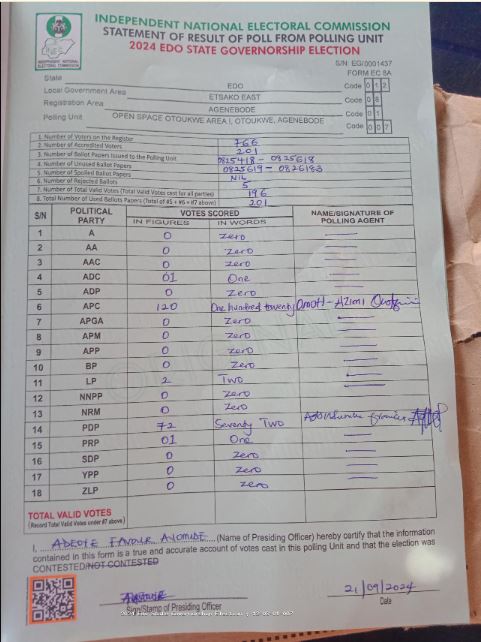 INDEPENDENT NATIONAL ELECTORAL COMMISSION
STATEMENT OF RESULT OF POLL FROM POLLING UNIT
2024 EDO STATE GOVERNORSHIP ELECTION
INEC
INDEPENDENT NATIONAL
ELECTORAL COMMISSION
S/N: EG/0001437
FORM EC 8A
State EDO Code 0 1 2
Local Government Area ETSAKO EAST Code 0 8
Registration Area AGENEBODE Code 0 1
Polling Unit OPEN SPACE OTOUKWE AREA I, OTOUKWE, AGENEBODE Code 0 0 7
1. Number of Voters on the Register 766
2. Number of Accredited Voters 201
3. Number of Ballot Papers Issued to the Polling Unit 0825418 - 0825618
4. Number of Unused Ballot Papers 0825619 - 0826183
5. Number of Spoiled Ballot Papers NIL
6. Number of Rejected Ballots 5
7. Number of Total Valid Votes (Total Valid Votes cast for all parties) 196
8. Total Number of Used Ballots Papers (Total of #5 + #6 + #7 above) 201
S/N POLITICAL PARTY VOTES SCORED NAME/SIGNATURE OF POLLING AGENT
IN FIGURES IN WORDS
1 A 0 Zero
2 AA 0 Zero
3 AAC 0 Zero
4 ADC 01 One
5 ADP 0 Zero
6 APC 120 One hundred twenty
7 APGA 0 Zero
8 APM 0 Zero
9 APP 0 Zero
10 BP 0 Zero
11 LP 2 Two
12 NNPP 0 Zero
13 NRM 0 Zero
14 PDP 72 Seventy Two
15 PRP 01 One
16 SDP 0 Zero
17 YPP 0 Zero
18 ZLP 0 Zero
TOTAL VALID VOTES
(Record Total Valid Votes under #7 above)
I, ADEOYE FAVOUR AYOMIDE (Name of Presiding Officer) hereby certify that the information
contained in this form is a true and accurate account of votes cast in this polling Unit and that the election was
CONTESTED/NOT CONTESTED
21/09/2024
Sign/Stamp of Presiding Officer Date